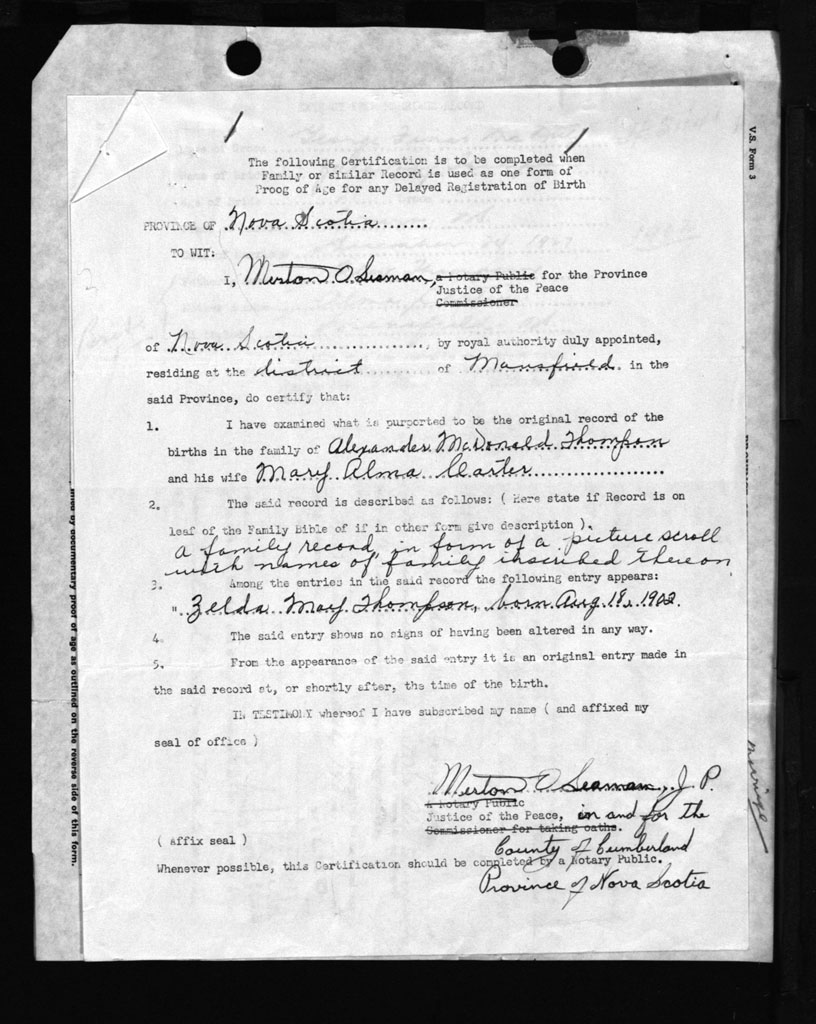 V.S. Form 3
The following Certification is to be completed when
Family or similar Record is used as one form of
Proog of Age for any Delayed Registration of Birth
PROVINCE OF Nova Scotia
TO WIT:
I, Merton O. Seaman, a Notary Public for the Province
Justice of the Peace
Commissioner
of Nova Scotia, by royal authority duly appointed,
residing at the district of Mansfield in the
said Province, do certify that:
1. I have examined what is purported to be the original record of the
births in the family of Alexander McDonald Thompson
and his wife Mary Alma Carter
2. The said record is described as follows: ( Here state if Record is on
leaf of the Family Bible of if in other form give description ).
A family record, in form of a picture scroll
with names of family inscribed thereon
3. Among the entries in the said record the following entry appears:
" Zelda Mary Thompson, born Aug. 18, 1902.
4. The said entry shows no signs of having been altered in any way.
5. From the appearance of the said entry it is an original entry made in
the said record at, or shortly after, the time of the birth.
IN TESTIMONY whereof I have subscribed my name ( and affixed my
seal of office )
Merton O Seaman, J. P.
a Notary Public
Justice of the Peace, in and for the
Commissioner for taking oaths.
( Affix seal ) County of Cumberland
Whenever possible, this Certification should be completed by a Notary Public.
Province of Nova Scotia
by documentary proof of age as outlined on the reverse side of this form.